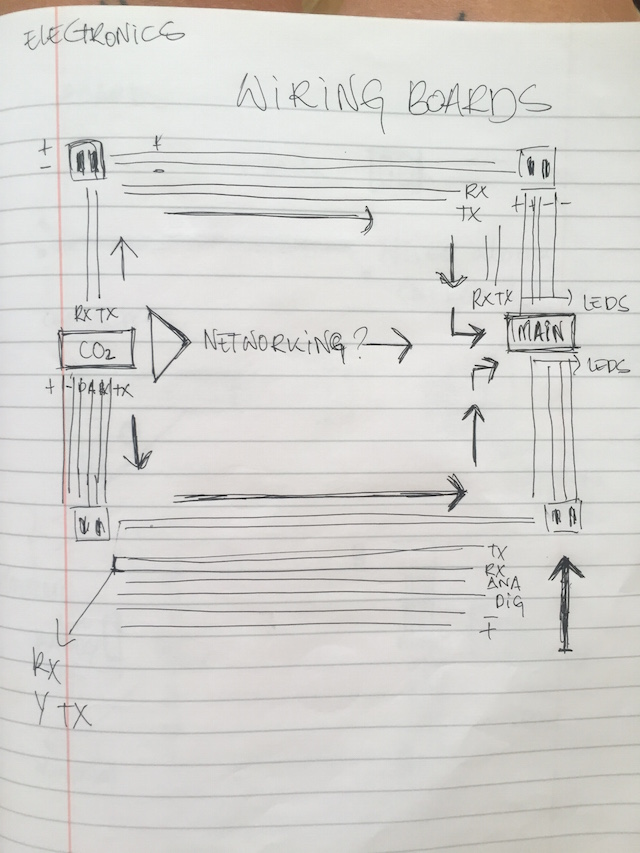 ELECTRONICS
WIRING BOARDS
+
-
+
-
RX
TX
+ + - -
RX TX
LEDS
RX TX
CO2
NETWORKING?
MAIN
LEDS
+ - D A RX TX
TX
RX
ANA
DIG
-
+
RX
Y TX